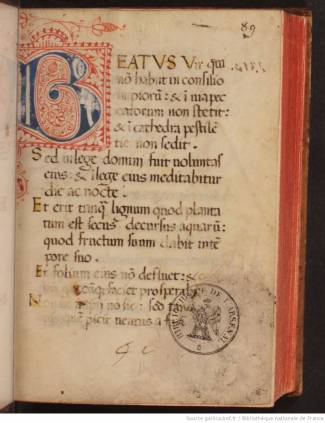 89
BEATVS Vir qui
nõ habiit in consilio
impiorũ: & ĩ uia pec
catorum non stetit:
& ĩ cathedra pestilẽ
tie non sedit.
Sed in lege domini fuit voluntas
eius: & ĩ lege eius meditabitur
die ac nocte.
Et erit tanq̃ lignum quod planta
tum est secus decursus aquarũ:
quod fructum suum dabit in tẽ
pore suo.
Et folium eius nõ defluet: &
faciet prospera
Non impii nõ sic: sed
picit ventus a
BIBLIOTHEQUE DE L'ARSENAL
Source gallica.bnf.fr / Bibliothèque nationale de France